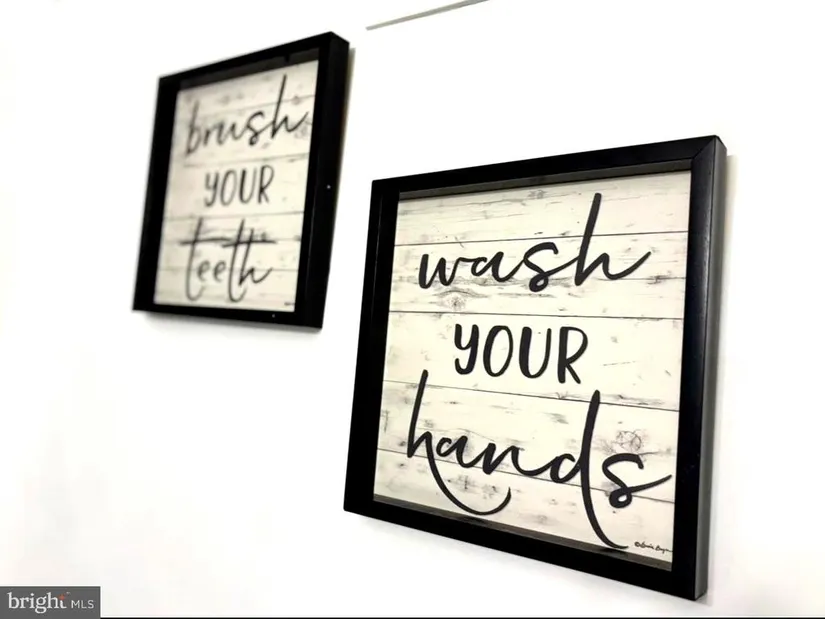 brush
YOUR
teeth
wash
YOUR
hands
bright MLS